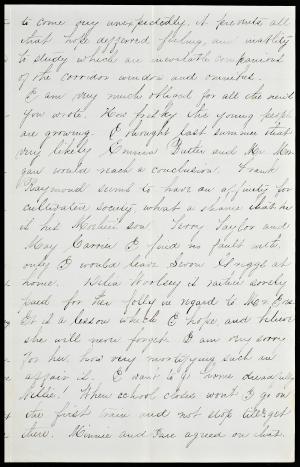 to come very unexpectedly, it prevents all
that hope deferred feeling, an inability
to study which are inevitable companions
of the corridor window and omnibus.
I am very much obliged for all the news
you wrote. How fast the young people
are growing. I thought last summer that
very likely Emma Butler and Mr. Mor-
gan would reach a conclusion. Frank
Raymond seems to have an affinity for
cultivated society, what a shame that he
is his Mother's son. Jerry Taylor and
May Carrier I find no fault with,
only I would leave Griggs at
home. Delia Woolsey is rather sorely
paid for her folly in regard to Mr.
It is a lesson which I hope, and believe
she will never forget. I am very sorry
for her, how very mortifying such an
affair is. I want to go home dreadfully
Nellie. When school closes won't I go on
the first train and not stop till I get
there. Minnie and are agreed on that.